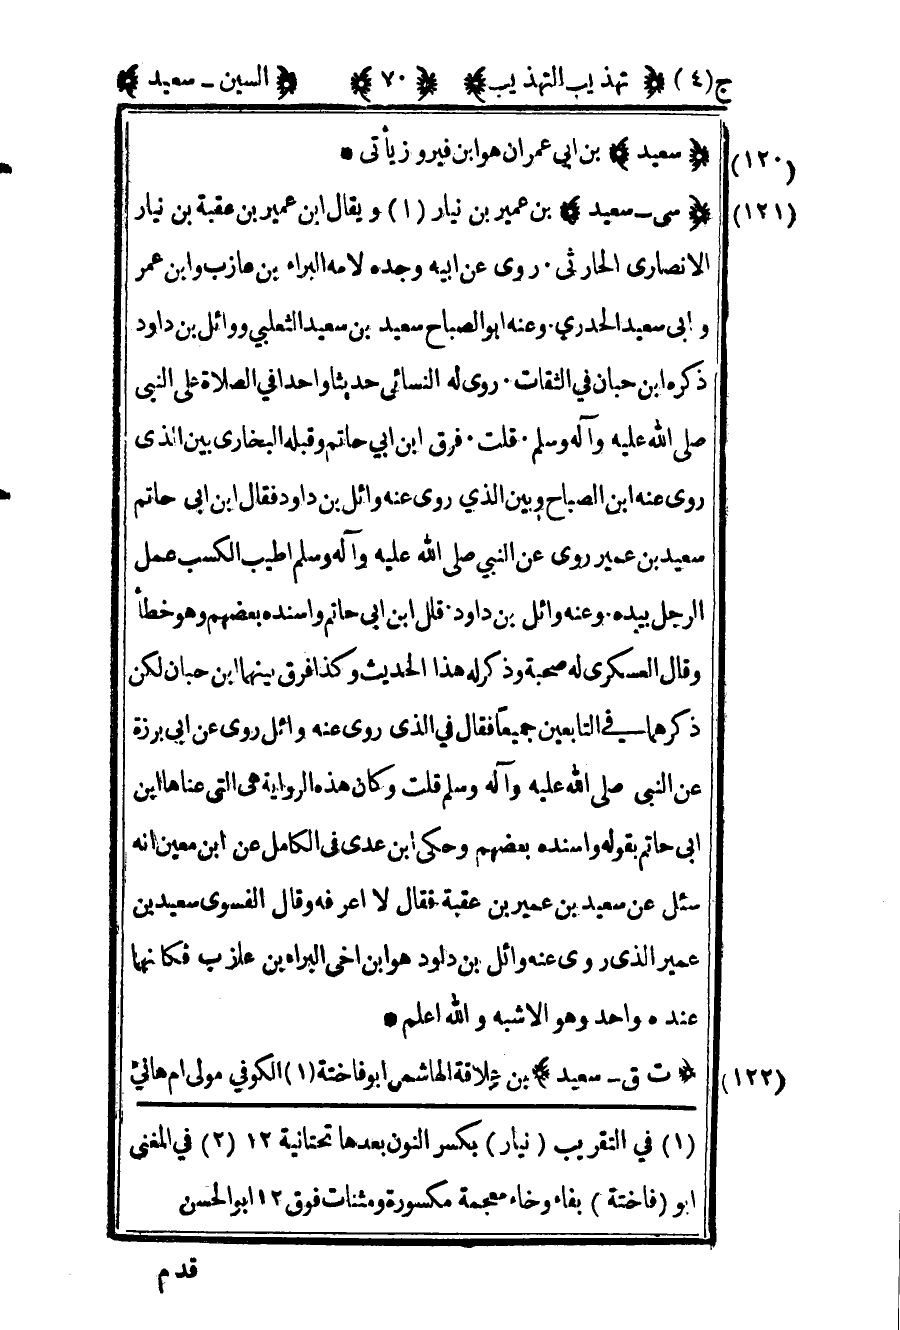 ج(٤) ﴿ تهذيب التهذيب ﴾ ﴿ ٧٠ ﴾ ﴿ السين ـ سعيد ﴾
(١٢٠) ﴿ سعيد ﴾ بن ابي عمران هو ابن فيروز يأتى •
(١٢١) ﴿ سى ـ سعيد ﴾ بن عمير بن نيار (١) ويقال ابن عمير بن عقبة بن نيار
الانصارى الحارثى · روى عن ابيه وجده لامه البراء بن عازب وابن عمر
وابى سعيد الخدري · وعنه ابو الصباح سعيد بن سعيد الثعلبي ووائل بن داود
ذكره ابن حبان في الثقات · روى له النسائى حديثا واحدا في الصلاة على النبى
صلى الله عليه وآله وسلم · قلت · فرق ابن ابي حاتم وقبله البخارى بين الذى
روى عنه ابن الصباح وبين الذي روى عنه وائل بن داود فقال ابن ابى حاتم
سعيد بن عمير روى عن النبي صلى الله عليه وآله وسلم اطيب الكسب عمل
الرجل بيده · وعنه وائل بن داود · قال ابن ابى حاتم واسنده بعضهم وهو خطأ
وقال العسكرى له صحبة وذكر له هذا الحديث وكذا فرق بينها ابن حبان لكن
ذكرهما في التابعين جميعاً فقال في الذى روى عنه وائل روى عن ابى برزة
عن النبى صلى الله عليه وآله وسلم قلت وكان هذه الرواية هى التى عناها ابن
ابى حاتم بقوله واسنده بعضهم وحكى ابن عدى فى الكامل عن ابن معين انه
سئل عن سعيد بن عمير بن عقبة فقال لا اعرفه وقال الفسوى سعيد بن
عمير الذى روى عنه وائل بن داود هو ابن اخى البراء بن عازب فكانهما
عنده واحد وهو الاشبه والله اعلم •
(١٢٢) ﴿ ت ق ـ سعيد ﴾ بن علاقة الهاشمى ابو فاختة (١) الكوفي مولى ام هانئ
(١) في التقريب (نيار) بكسر النون بعدها تحتانية ١٢ (٢) في المغنى
ابو (فاختة) بفاء وخاء معجمة مكسورة ومثنات فوق ١٢ ابو الحسن
قدم